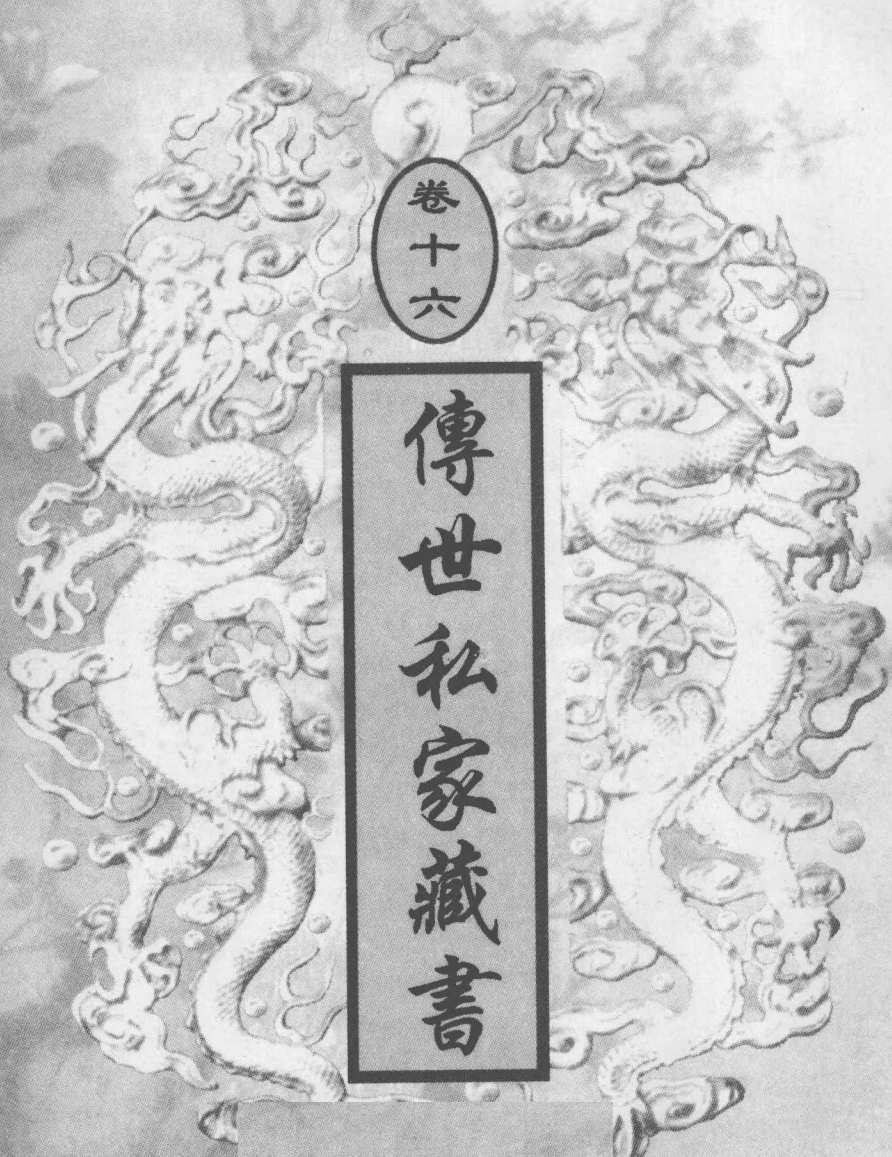 卷十六
傳世私家藏書